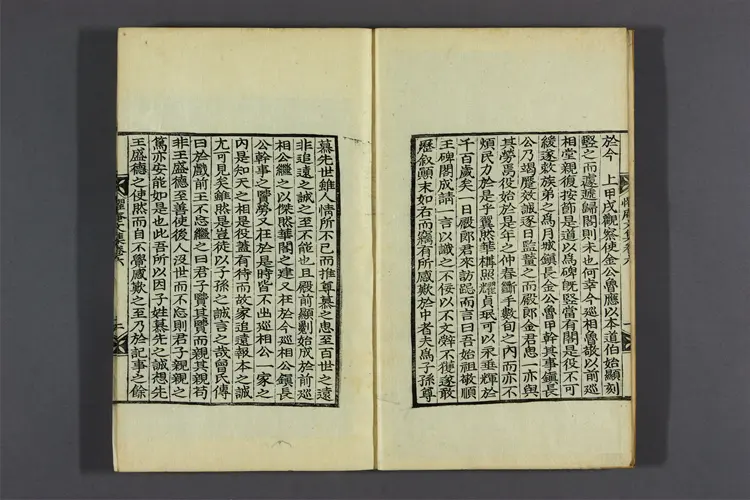 於今 上甲戌觀察使金公魯應以本道伯始顯刻
竪之而遽遞歸閣則未也何幸今巡相魯敬以前巡
相堂親復按節是道以爲碑旣竪當有閣是役不可
緩遂敦族弟之爲月城鎭長金公魯甲幹其事鎭長
公乃竭蹷效誠逐日監蕫之而殿郎金君思 亦與
其勞焉役始於是年之仲春斷手數旬之內而亦不
煩民力於是乎翼然華構照耀貞珉可以永垂輝於
千百歲矣一日殿郎君來訪 而言曰吾始祖敬順
王碑閣成請一言以識之不佞以不文辭不獲遂敢
歷叙顚末如右而竊有所感歎於中者夫爲子孫尊
慕先世雖人情所不已而推尊慕之忠至百世之遠
非追遠之誠之至不能也且殿前顯剛始成於前巡
相公繼之以傑然華閣之建又在於今巡相公鎭長
公幹事之賢勞又在於是時皆不出巡相公一家之
內是知天之相是役蓋有待而故家追遠報本之誠
尤可見矣雖然是豈徒以子孫之誠言之哉曾氏傳
曰於戱前王不忘繼之曰君子賢其賢而親其親苟
非王盛德至善使後人沒世而不忘則君子親親之
篤亦安能如是也此吾所以因子姓慕先之誠想先
王盛德之使然而自不覺感歎之至乃於記事之餘